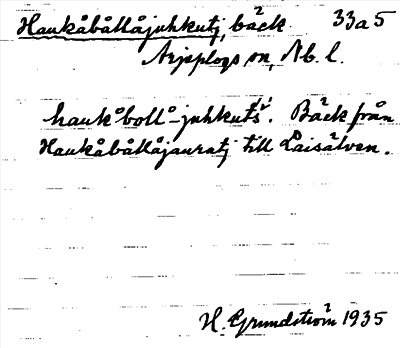 Haukåbållåjuhkutj, bäck. 33a5
Arjeplogs sn, Nb. l.
haukº bollº-juhkuts´. Bäck från
Haukåbållåjauratj till Laisälven.
H. Grundström 1935